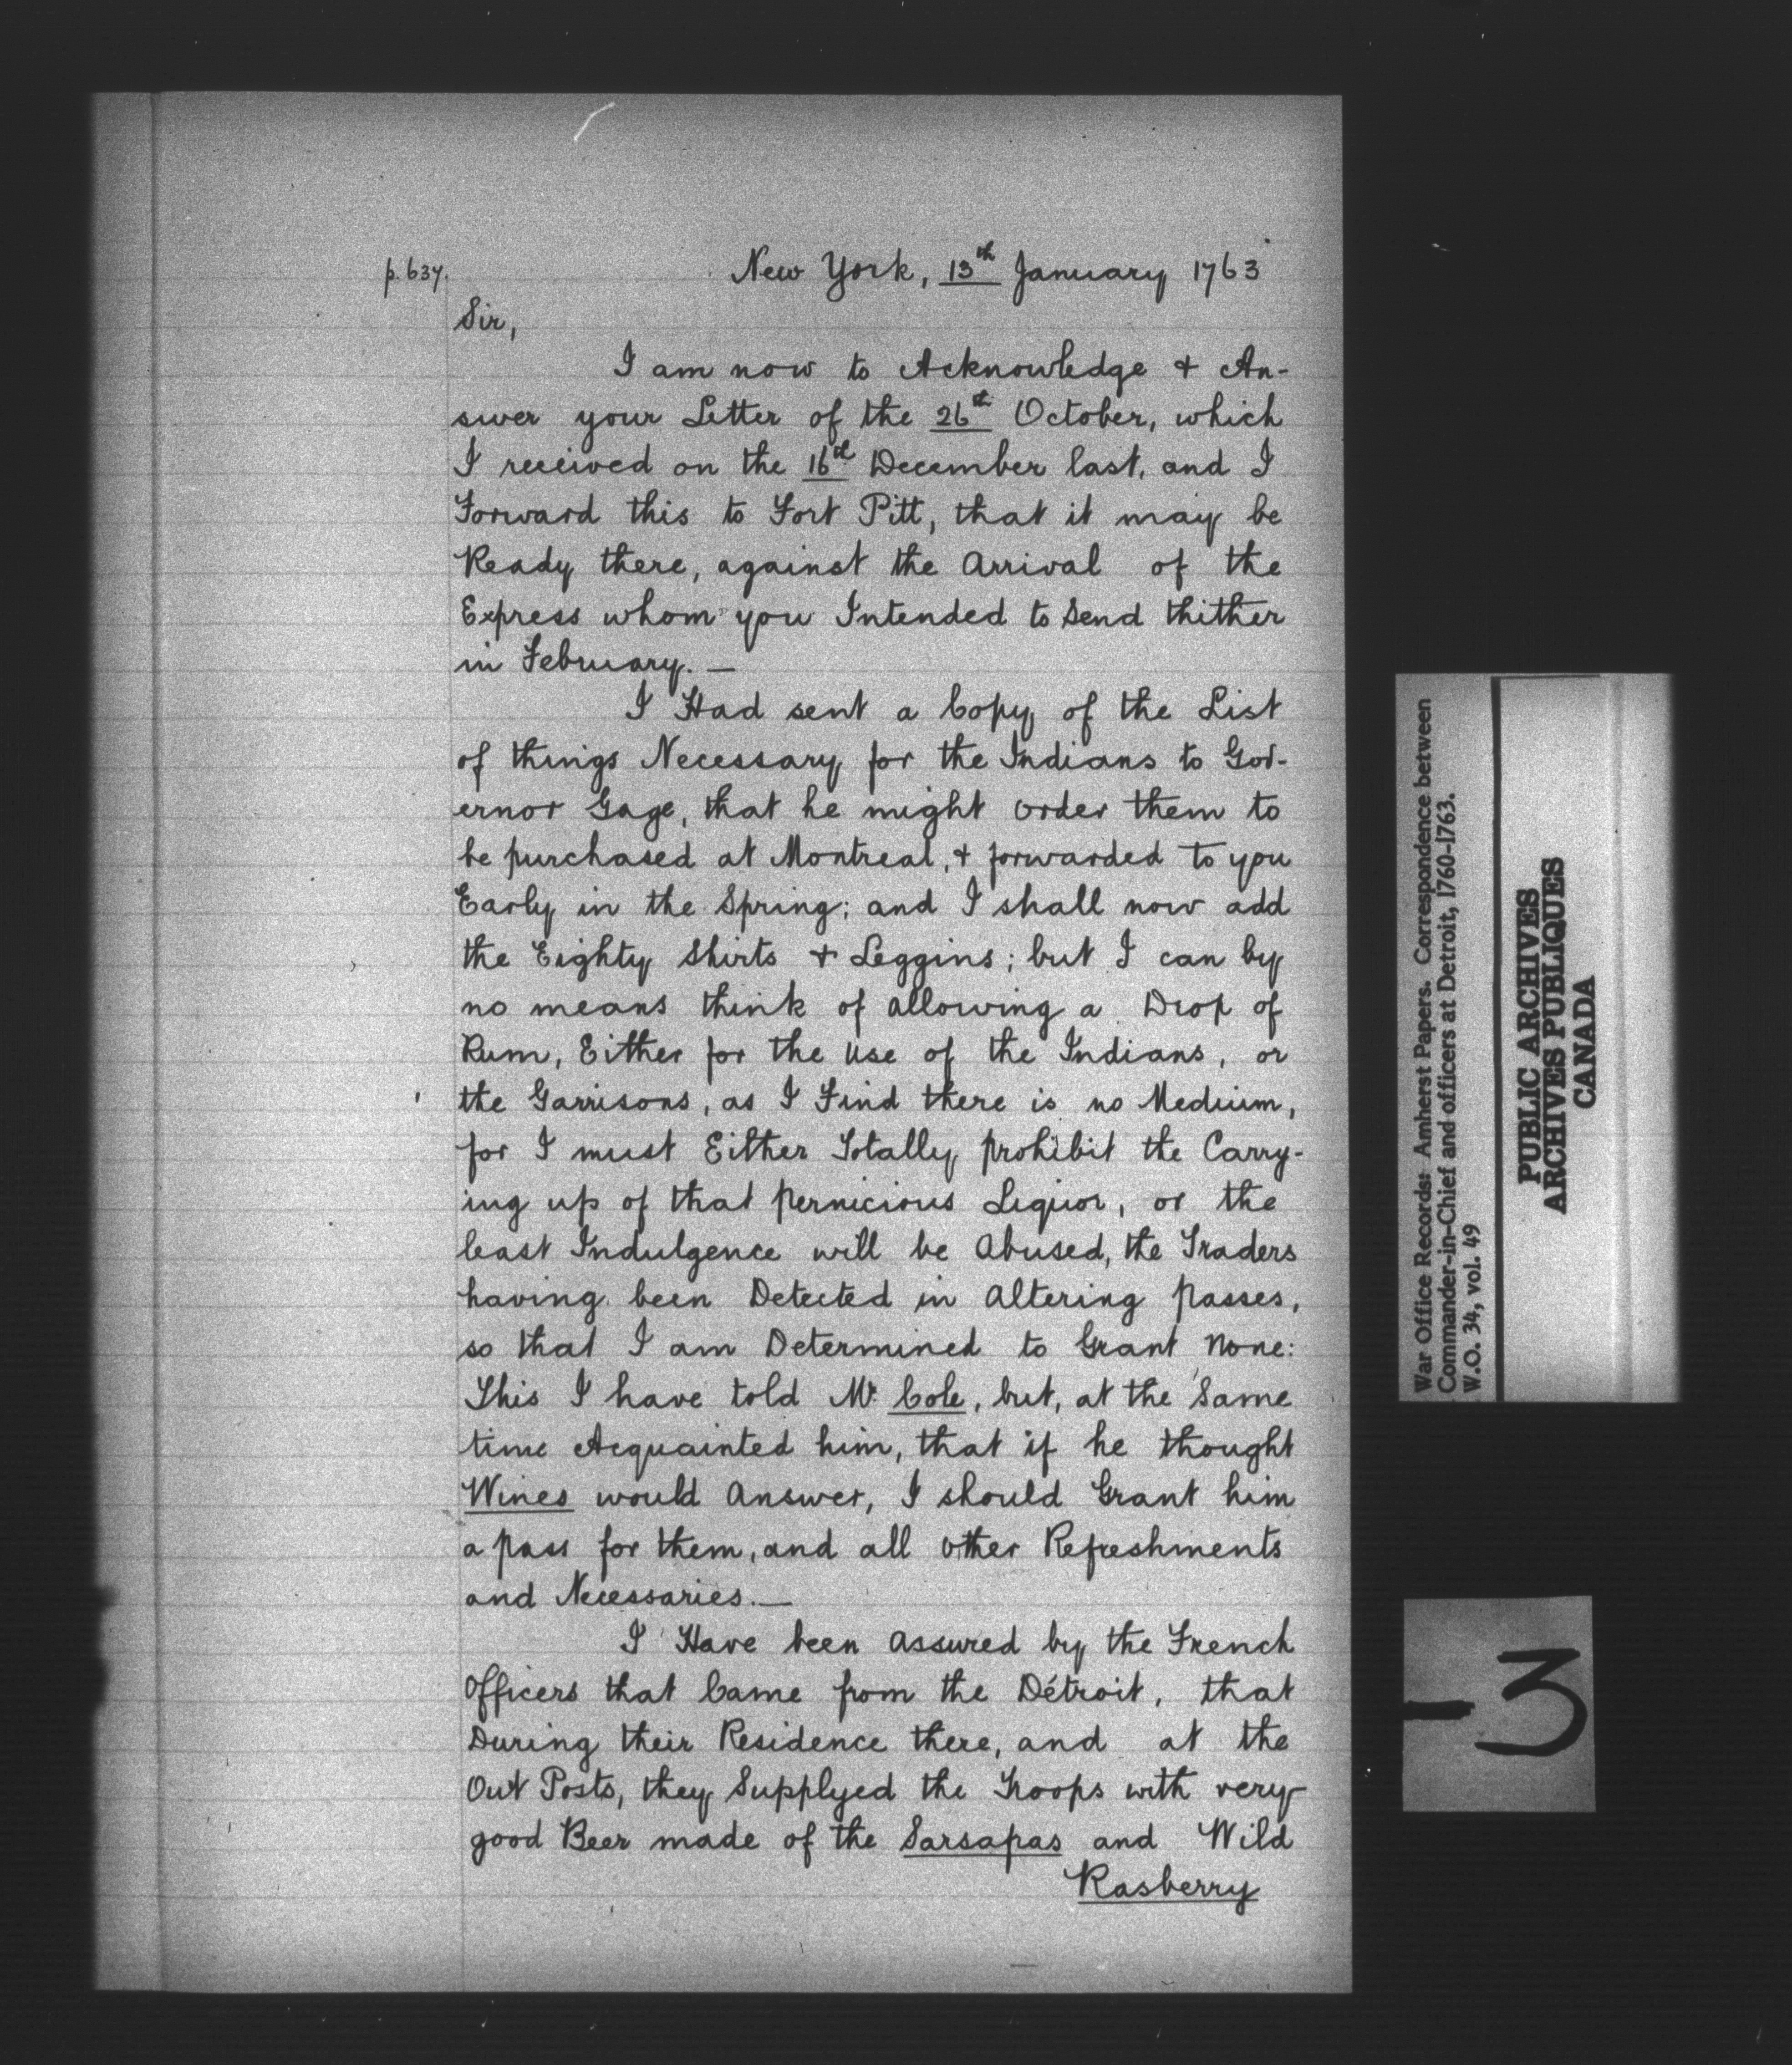 p. 637.
New York, 13th January 1763
Sir,
I am now to Acknowledge & An-
swer your Letter of the 26th October, which
I received on the 16th December last, and I
Forward this to Fort Pitt, that it may be
Ready there, against the Arrival of the
Express whom you Intended to Send thither
in February. —
I Had sent a Copy of the List
of things Necessary for the Indians to Gov-
ernor Gage, that he might order them to
be purchased at Montreal, & forwarded to you
Early in the Spring; and I shall now add
the Eighty Shirts & Leggins; but I can by
no means think of allowing a Drop of
Rum, Either for the use of the Indians, or
the Garrisons, as I Find there is no Medium,
for I must Either Totally prohibit the Carry-
ing up of that pernicious Liquor, or the
least Indulgence will be Abused, the Traders
having been Detected in Altering passes,
so that I am Determined to Grant None:
This I have told Mr. Cole, but, at the Same
time Acquainted him, that if he thought
Wines would Answer, I should Grant him
a pass for them, and all other Refreshments
and Necessaries. —
I Have been Assured by the French
Officers that Came from the Détroit, that
During their Residence there, and at the
Out Posts, they Supplyed the Troops with very
good Beer made of the Sarsapas and Wild
Rasberry
War Office Records: Amherst Papers. Correspondence between
Commander-in-Chief and officers at Detroit, 1760-1763.
W.O. 34, vol. 49
PUBLIC ARCHIVES
ARCHIVES PUBLIQUES
CANADA
-3